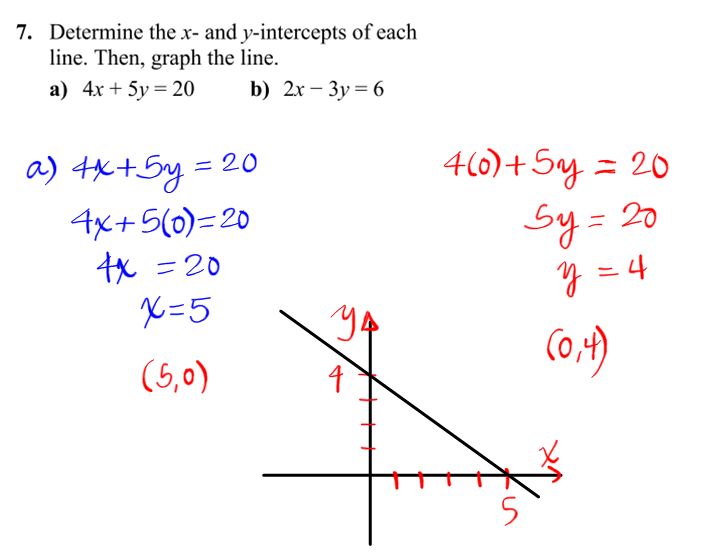 7. Determine the x- and y-intercepts of each
line. Then, graph the line.
a) 4x + 5y = 20 b) 2x − 3y = 6
a) 4x+5y = 20
4x+5(0)=20
4x = 20
x=5
(5,0)
4(0)+5y = 20
5y = 20
y = 4
(0,4)
y
4
x
5